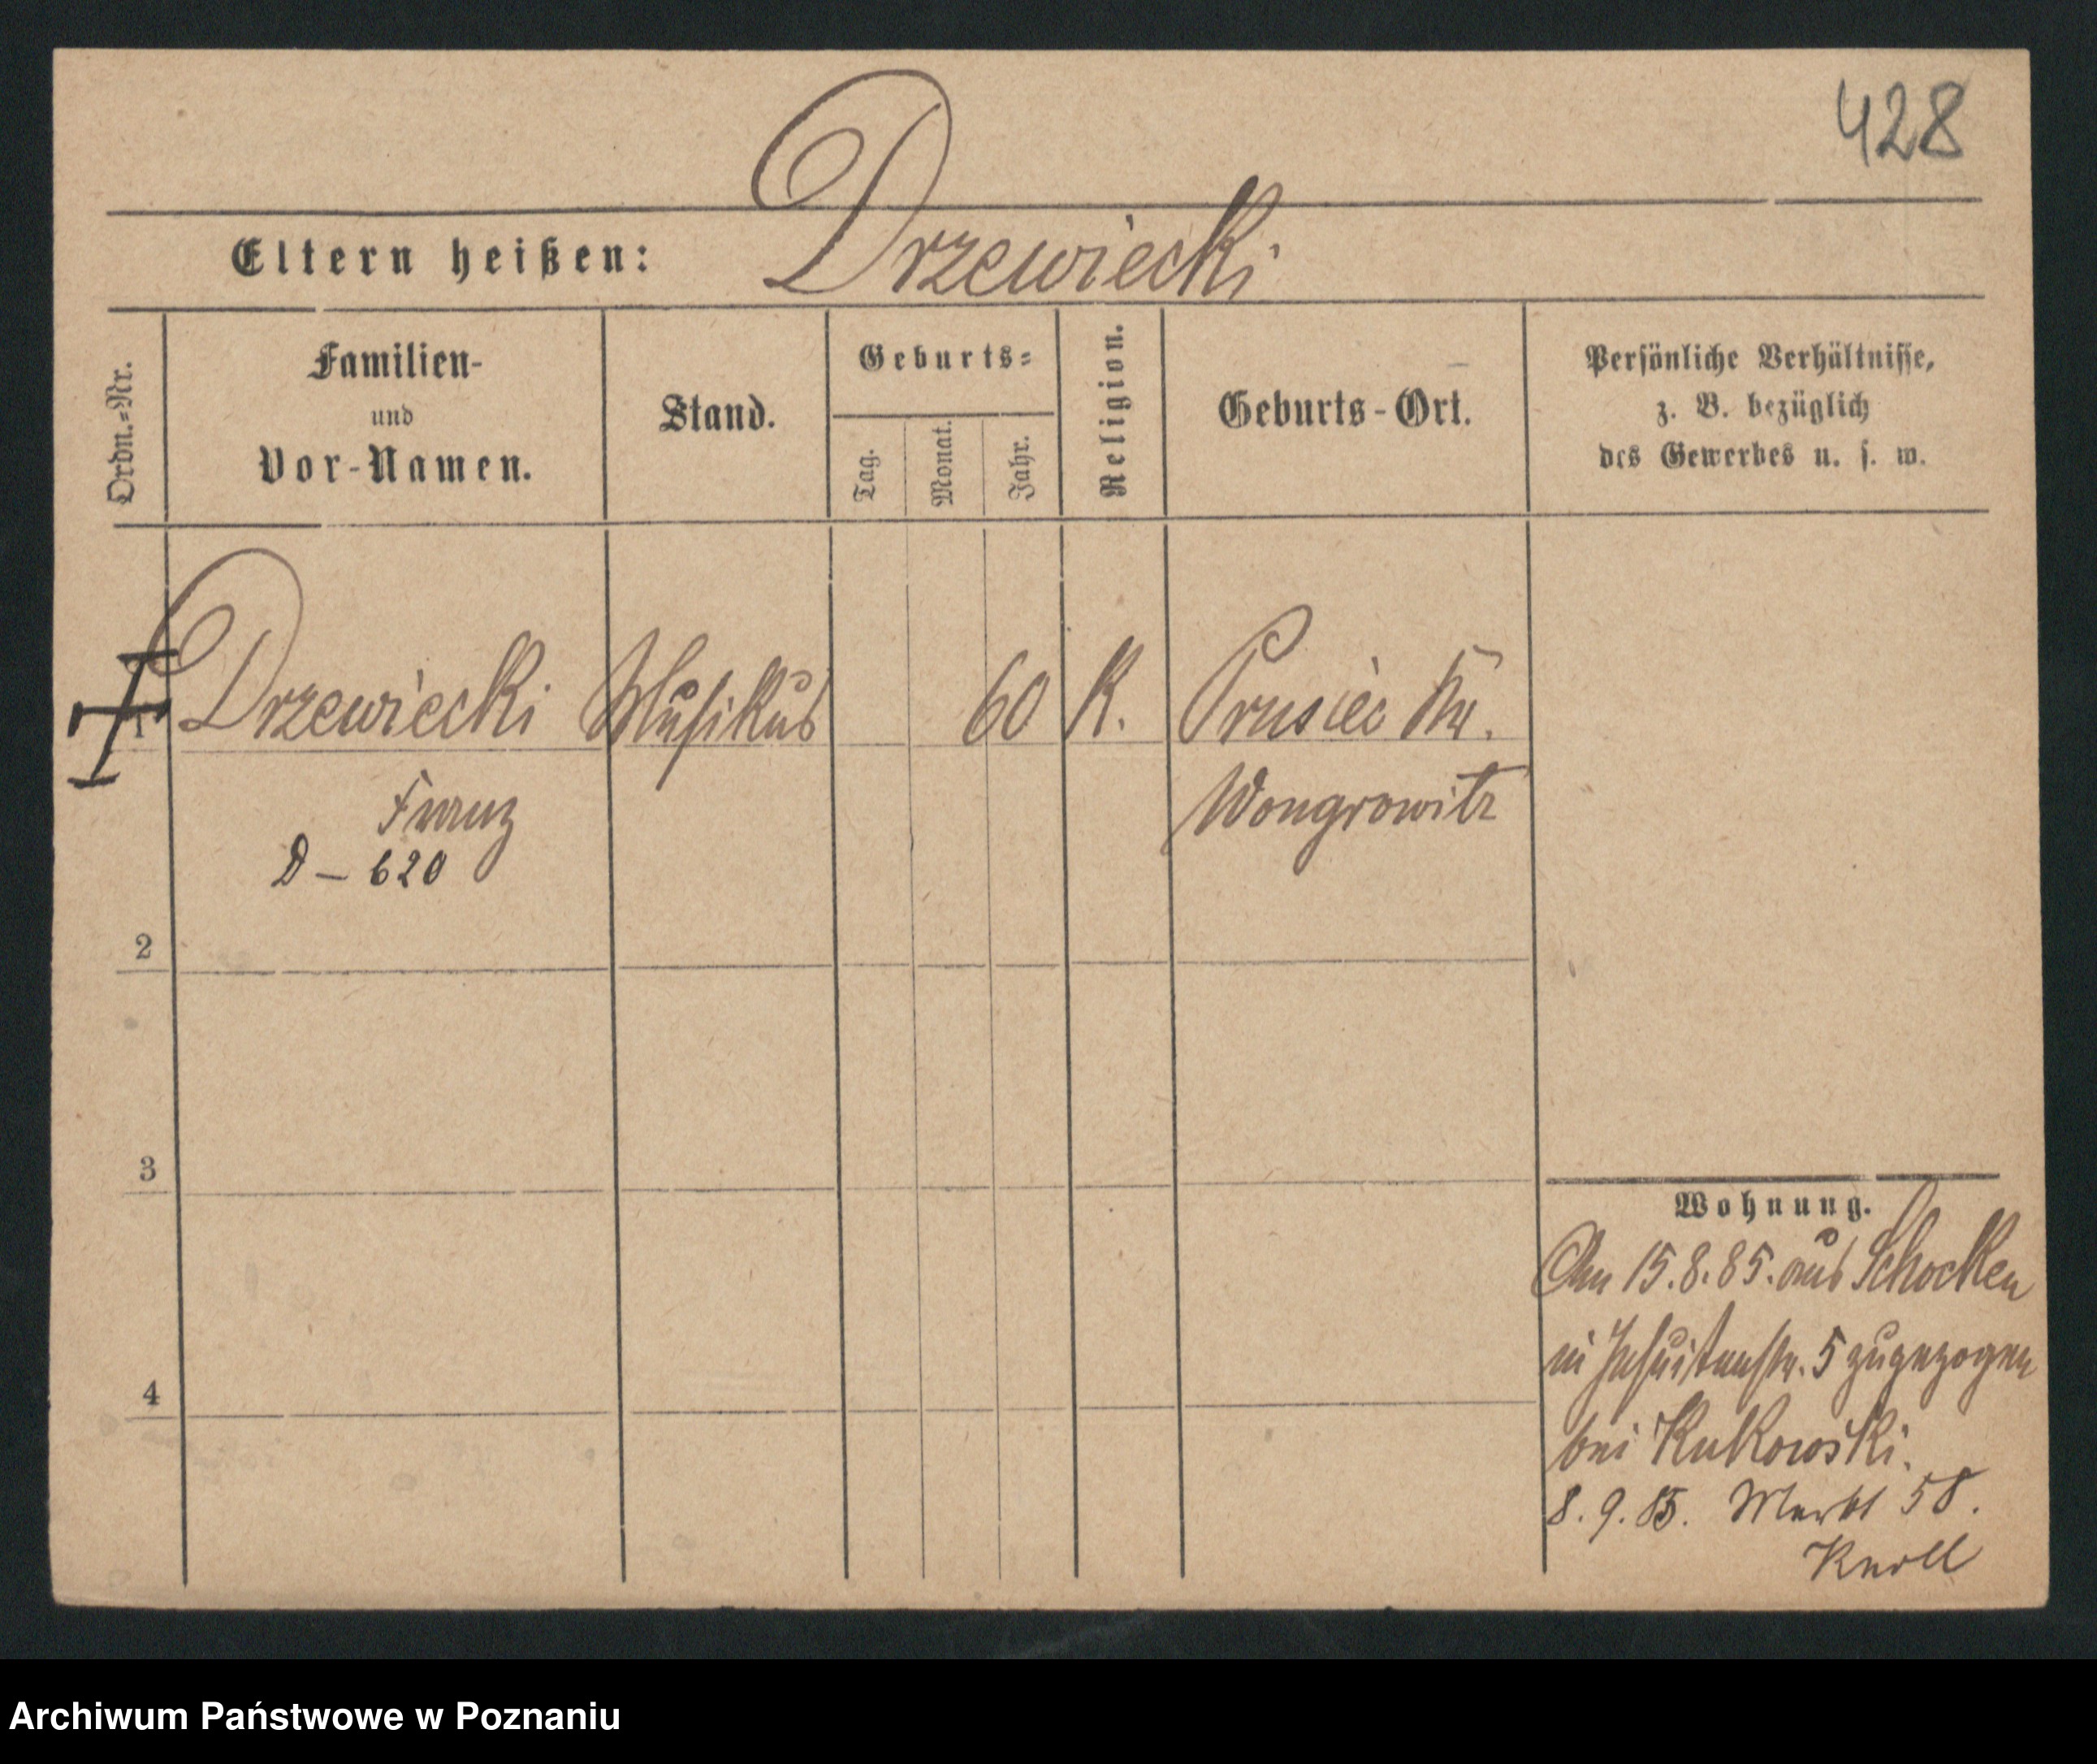 428
Drzewiecki
Eltern heißen:
Ordn.-Nr.
Familien-
und
Vor-Namen.
Stand.
Geburts-
Tag.
Monat.
Jahr.
Religion.
Geburts-Ort.
Persönliche Verhältnisse,
z. B. bezüglich
des Gewerbes u. s. w.
1 Drzewiecki Musikus 60 K. Prusiec Kr.
Franz Wongrowitz
D – 620
2
3
4
Wohnung.
Am 15.8.85. aus Schocken
in Jesuitenstr. 5 zugezogen
bei Kukowski.
8.9.85. Markt 58.
Knoll
Archiwum Państwowe w Poznaniu